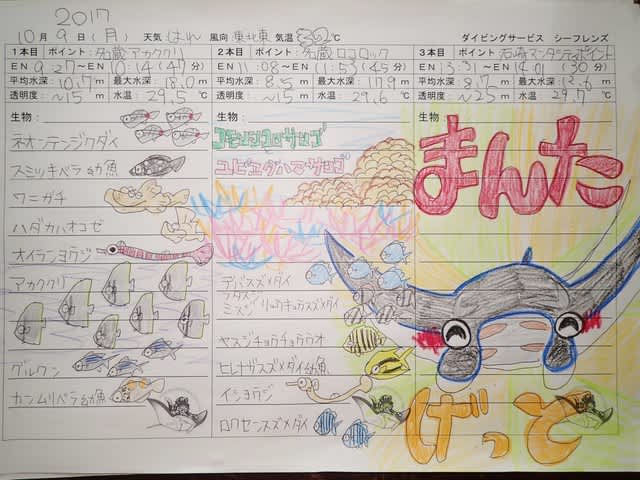 2017
10月 9日(月) 天気 はれ 風向 東北東 気温 30.2℃ ダイビングサービス シーフレンズ
1本目 ポイント: 名蔵アカククリ
EN 9:27 ~EN 10:14 (47分)
平均水深: 10.7m 最大水深: 18.0m
透明度: ~15m 水温 29.5℃
生物:
ネオンテンジクダイ
スミツキベラ幼魚
ワニガチ
ハダカハオコゼ
オイランヨウジ
アカククリ
グルクン
カンムリベラ幼魚
2本目 ポイント: 名蔵ロコロック
EN 11:08 ~EN 11:53 (45分)
平均水深: 8.5m 最大水深: 17.9m
透明度: ~15m 水温 29.6℃
生物:
コモンシコロサンゴ
ユビエダハマサンゴ
デバスズメダイ
フタスジ
ミスジリュウキュウスズメダイ
ヤスジチョウチョウウオ
ヒレナガスズメダイ幼魚
イシヨウジ
ロクセンスズメダイ
3本目 ポイント: 石崎マンタシティポイント
EN 13:31 ~EN 14:01 (30分)
平均水深: 8.7m 最大水深: 13.6m
透明度: ~25m 水温 29.7℃
生物:
まんた
げっと